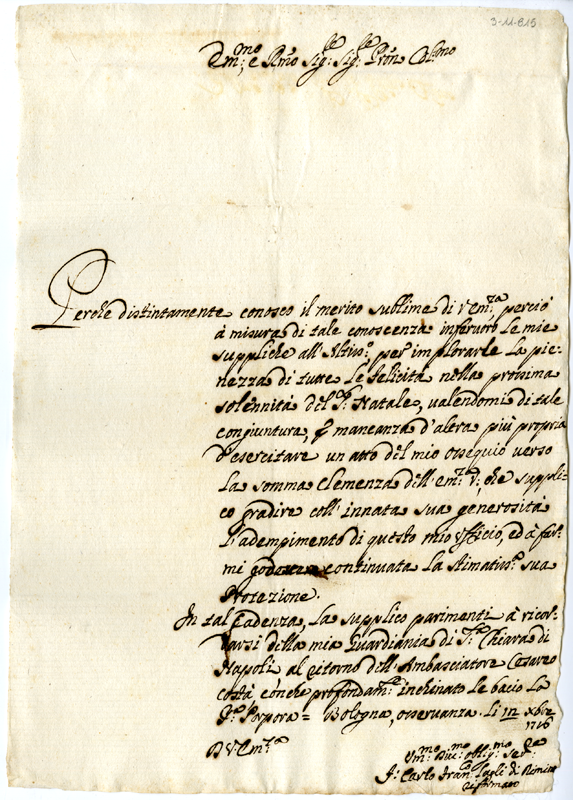 3-11-615
Em:mo e Rmo Sig:re Sig:re Prõn Col:mo
Perche distintamente conosco il merito sublime di V Em:za perciò
à misura di tale conoscenza infervoro le mie
suppliche all'Altiss:o per implorarle la pie-
nezza di tutte le felicità nella prossima
solennità del S:o Natale, valendomi di tale
congiuntura, p mancanza d'altra più propria
d'esercitare un atto del mio ossequio verso
la somma clemenza dell'em:za v:, che suppli-
co gradire coll'innata sua generosità
l'adempimento di questo mio Ufficio, ed à far-
mi godere continuata la stimatiss:a sua
Protezione.
In tal Cadenza, la supplico parimenti à ricor-
darsi della mia Guardiania di S:a Chiara di
Napoli, al ritorno dell'Ambasciatore Cesareo
costà conche profondam:te inchinato le bacio la
S:a Porpora = Bologna, osservanza. li Xbre
1716
D V Em:za
Um:mo Div:mo obl:mo Ser:re
F: Carlo Fran:co di Rimino